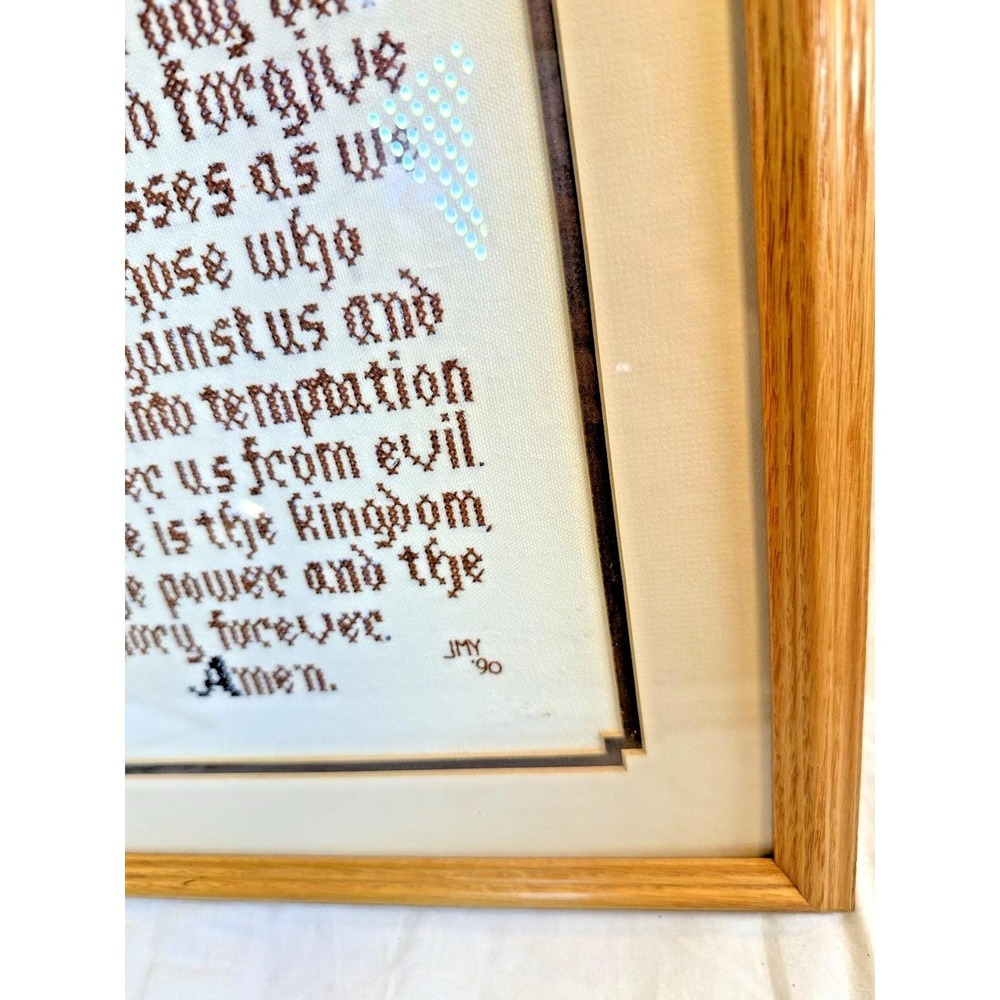 forgive
sses as we
hose who
gainst us and
into temptation
er us from evil.
e is the kingdom,
e power and the
ory, forever.
Amen.
JMY
'90